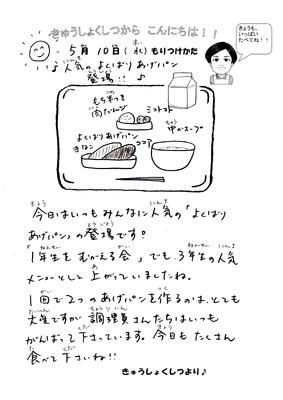 きゅうしょくしつから こんにちは!!
きょうも、
いっぱい
たべてね!!
5月10日(水)もりつけかた
♪人気の よくばり あげパン
登場!! ♪
もち米つき
肉だんご
ミニトマト
よくばりあげパン
きなこ
ココア
中かスープ
今日はいつもみんなに人気の「よくばり
あげパン」の登場です!
「1年生をむかえる会」でも、3年生の人気
メニューとして上がっていましたね。
1回で2つのあげパンを作るのは、とても
大変ですが調理員さんたちはいつも
がんばって下さっています。今日もたくさん
食べて下さいね!!
きゅうしょくしつより♪